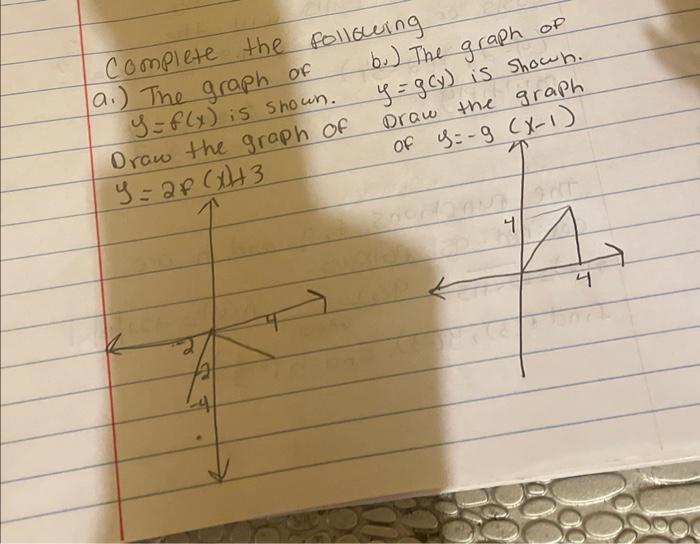 Complete the following
a.) The graph of
y=f(x) is shown.
Draw the graph of
y=2f(x)+3
-2
4
-2
-4
b.) The graph of
y=g(x) is shown.
Draw the graph
of y=-g (x-1)
4
4